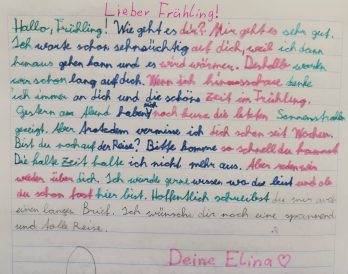 Lieber Frühling!
Hallo, Frühling! Wie geht es dir? Mir geht es sehr gut.
Ich warte schon sehnsüchtig auf dich, weil ich dann
hinaus gehen kann und es wird wärmer. Deshalb warten
wir schon lang auf dich. Wenn ich hinausschaue, denke
ich immer an dich und die schöne Zeit im Frühling.
Gestern am Abend haben sich noch kurz die letzten Sonnenstrahlen
gezeigt. Aber trotzdem vermisse ich dich schon seit Wochen.
Bist du noch auf der Reise? Bitte komme so schnell du kannst
Die kalte Zeit halte ich nicht mehr aus. Aber reden wir
wieder über dich. Ich würde gerne wissen wo du bist und ob
du schon fast hier bist. Hoffentlich schreibst du mir auch
einen langen Brief. Ich wünsche dir noch eine spannend
und tolle Reise.
Deine Elina